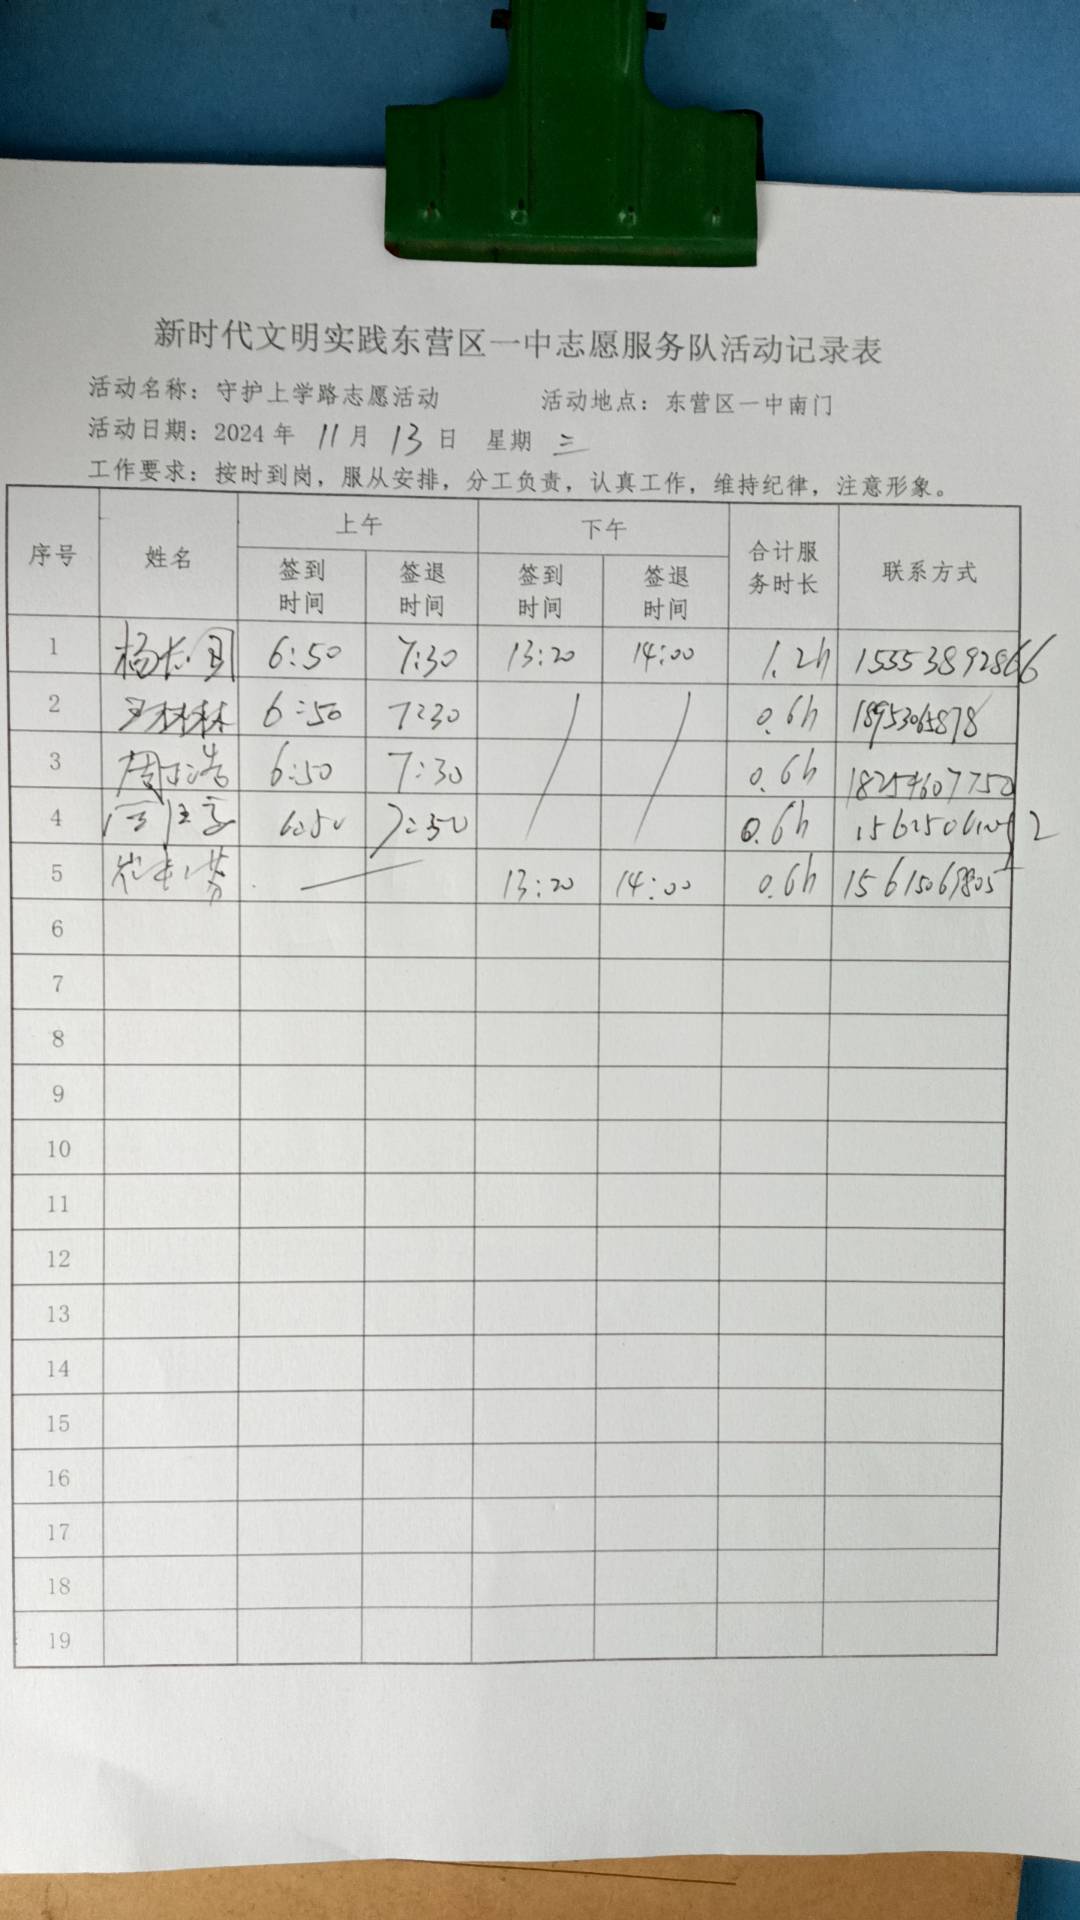 新时代文明实践东营区一中志愿服务队活动记录表
活动名称：守护上学路志愿活动 活动地点：东营区一中南门
活动日期：2024 年 11 月 13 日 星期 三
工作要求：按时到岗，服从安排，分工负责，认真工作，维持纪律，注意形象。
序号 姓名 上午 下午 合计服务时长 联系方式
签到时间 签退时间 签到时间 签退时间
1 6:50 7:30 13:20 14:00 1.2h 15553892866
2 王林林 6:50 7:30 0.6h 18953065878
3 6:50 7:30 0.6h 18254607750
4 6:50 0.6h
5 13:20 14:00 0.6h 15615069805
6
7
8
9
10
11
12
13
14
15
16
17
18
19